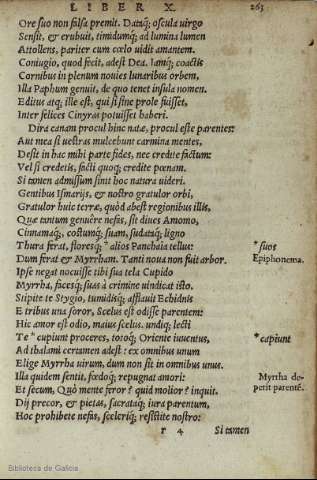 LIBER X. 263
Ore suo non falsa premit. Dataq́; oscula virgo
Sensit, & erubuit, timidumq́; ad lumina lumen
Attollens, pariter cum cœlo uidit amantem.
Coniugio, quod fecit, adest Dea. Iamq́; coactis
Cornibus in plenum nouies lunaribus orbem,
Illa Paphum genuit, de quo tenet insula nomen.
Editus atq; ille est, qui si sine prole fuisset,
Inter felices Cinyras potuisset haberi.
Dira canam procul hinc natæ, procul este parentes:
Aut mea si uestras mulcebunt carmina mentes,
Desit in hac mihi parte fides, nec credite factum:
Vel si credetis, facti quoq; credite pœnam.
Si tamen admissum sinit hoc natura uideri.
Gentibus Ismarijs, & nostro gratulor orbi,
Gratulor huic terræ, quòd abest regionibus illis,
Quæ tantum genuêre nefas, sit diues Amomo,
Cinnamaq́;, costumq́; suam, sudataq́; ligno
Thura ferat, floresq́; * alios Panchaia tellus: * suos
Dum ferat & Myrrham. Tanti noua non fuit arbor. Epiphonema.
Ipse negat nocuisse tibi sua tela Cupido
Myrrha, facesq́; suas à crimine uindicat isto.
Stipite te Stygio, tumidisq́; afflauit Echidnis
E tribus una soror, Scelus est odisse parentem:
Hic amor est odio, maius scelus. undiq; lecti
Te * cupiunt proceres, totoq́; Oriente iuuentus, * capiunt
Ad thalami certamen adest: ex omnibus unum
Elige Myrrha uirum, dum non sit in omnibus unus.
Illa quidem sentit, fœdoq́; repugnat amori: Myrrha de-
Et secum, Quò mente feror? quid molior? inquit. perit parentẽ.
Dij precor, & pietas, sacrataq́; iura parentum,
Hoc prohibete nefas, sceleriq́; resistite nostro:
r 4 Si tamen
Biblioteca de Galicia